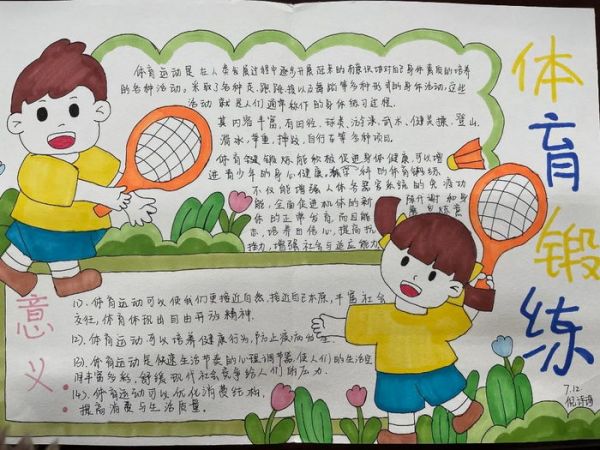 体育锻炼
体育运动是在人类发展过程中逐步开展起来的有意识地对自己身体素质的培养
的各种活动，采取了各种走、跑、跳、投以及舞蹈等多种形式的身体活动，这些
活动就是人们通常称作的身体练习过程.
其内容丰富，有田径、球类、游泳、武术、健美操、登山、
滑冰、举重、摔跤、自行车等多种项目.
体育锻炼能积极促进身体健康，可以增
进青少年的身心健康，科的体育锻炼，
不仅能增强人体各器官系统的免疫功
能，全面促进机体的新陈代谢和身
体的正常发育，而且能
志，培养自信心，提高抗
挫力，增强社会适应能力
意义
(1)、体育运动可以使我们更接近自然，接近自己本原，丰富社会
交往，体育体现出自由开放精神.
(2)、体育运动可以培养健康行为，防止疾病的发生.
(3)、体育运动是快速生活节奏的心理调节器，使人们的生活空
间丰富多彩，舒缓现代社会竞争给人们的压力.
(4)、体育运动可以优化消费结构，
提高消费与生活质量.
7.12
倪诗涵